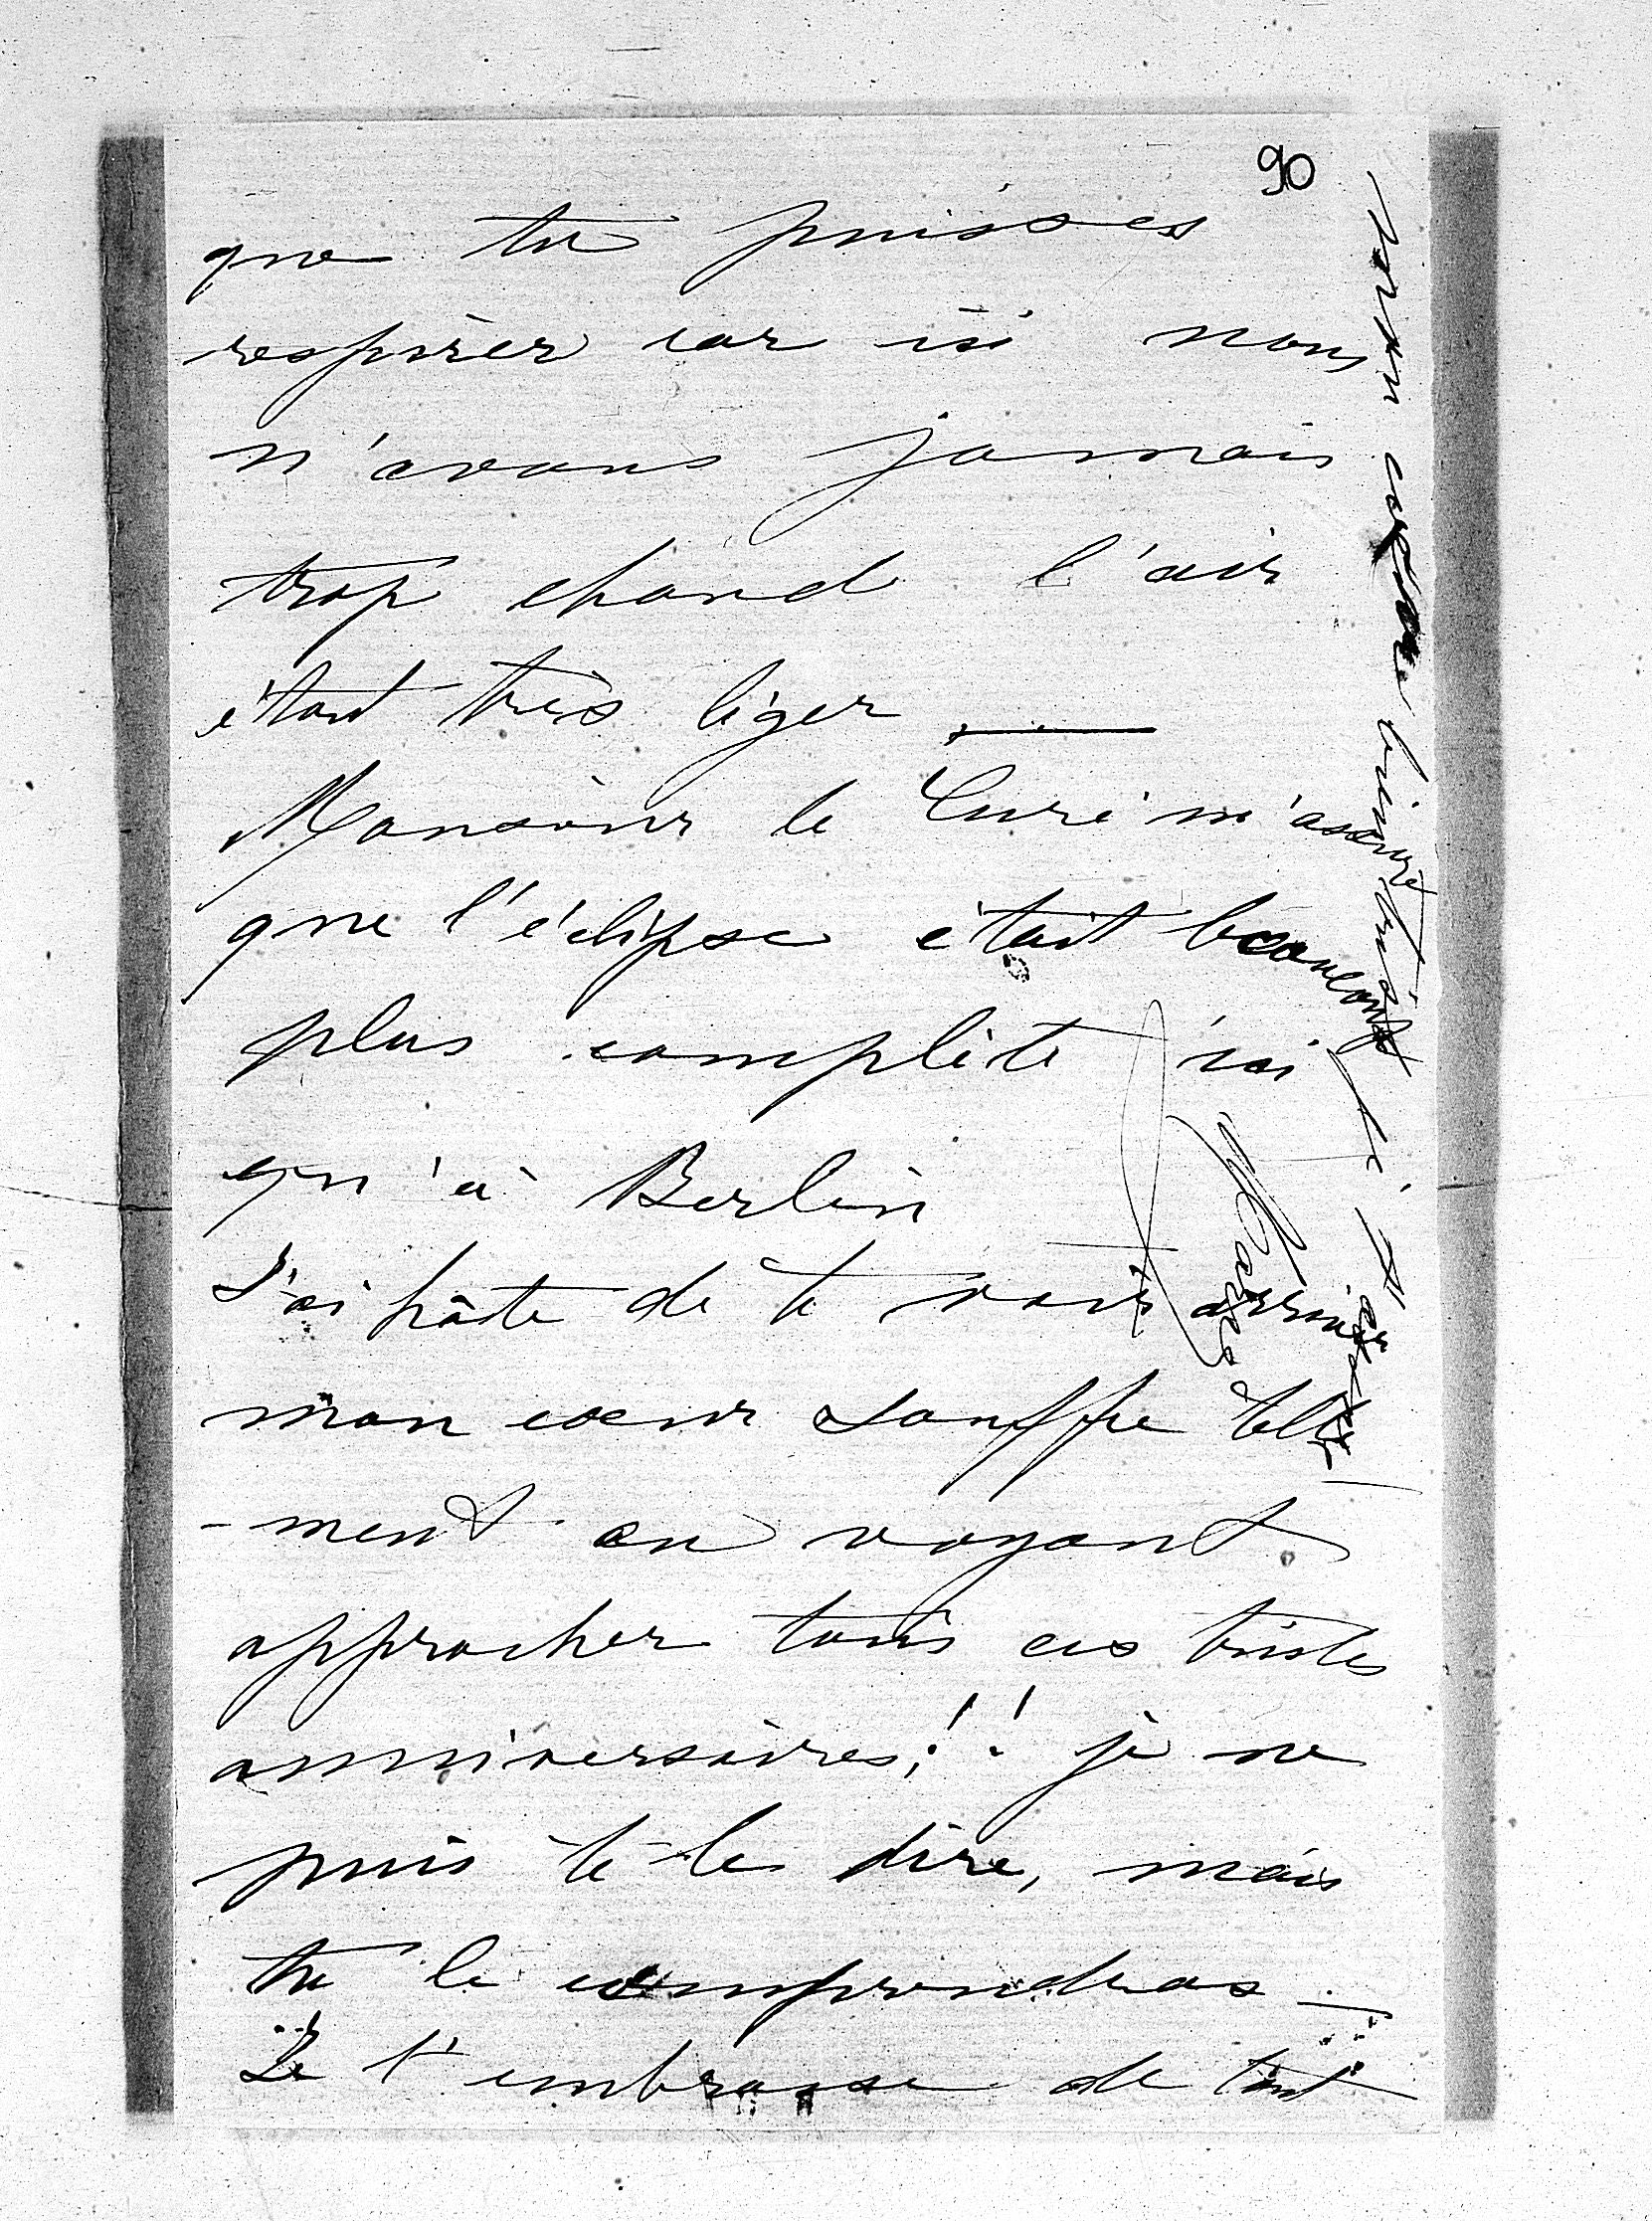 90
que tu puisses
respirer car ici nous
n'avons jamais
trop chaud l'air
étant très léger
Monsieur le Curé m'assure
que l'éclipse était beaucoup
plus complète ici
qu'à Berlin
J'ai hâte de te voir arriver
mon cœur souffre telle
-ment en voyant
approcher tous ces tristes
anniversaires!! je ne
puis te le dire, mais
tu le comprendras
Je t'embrasse de tout
mon cœur bien triste